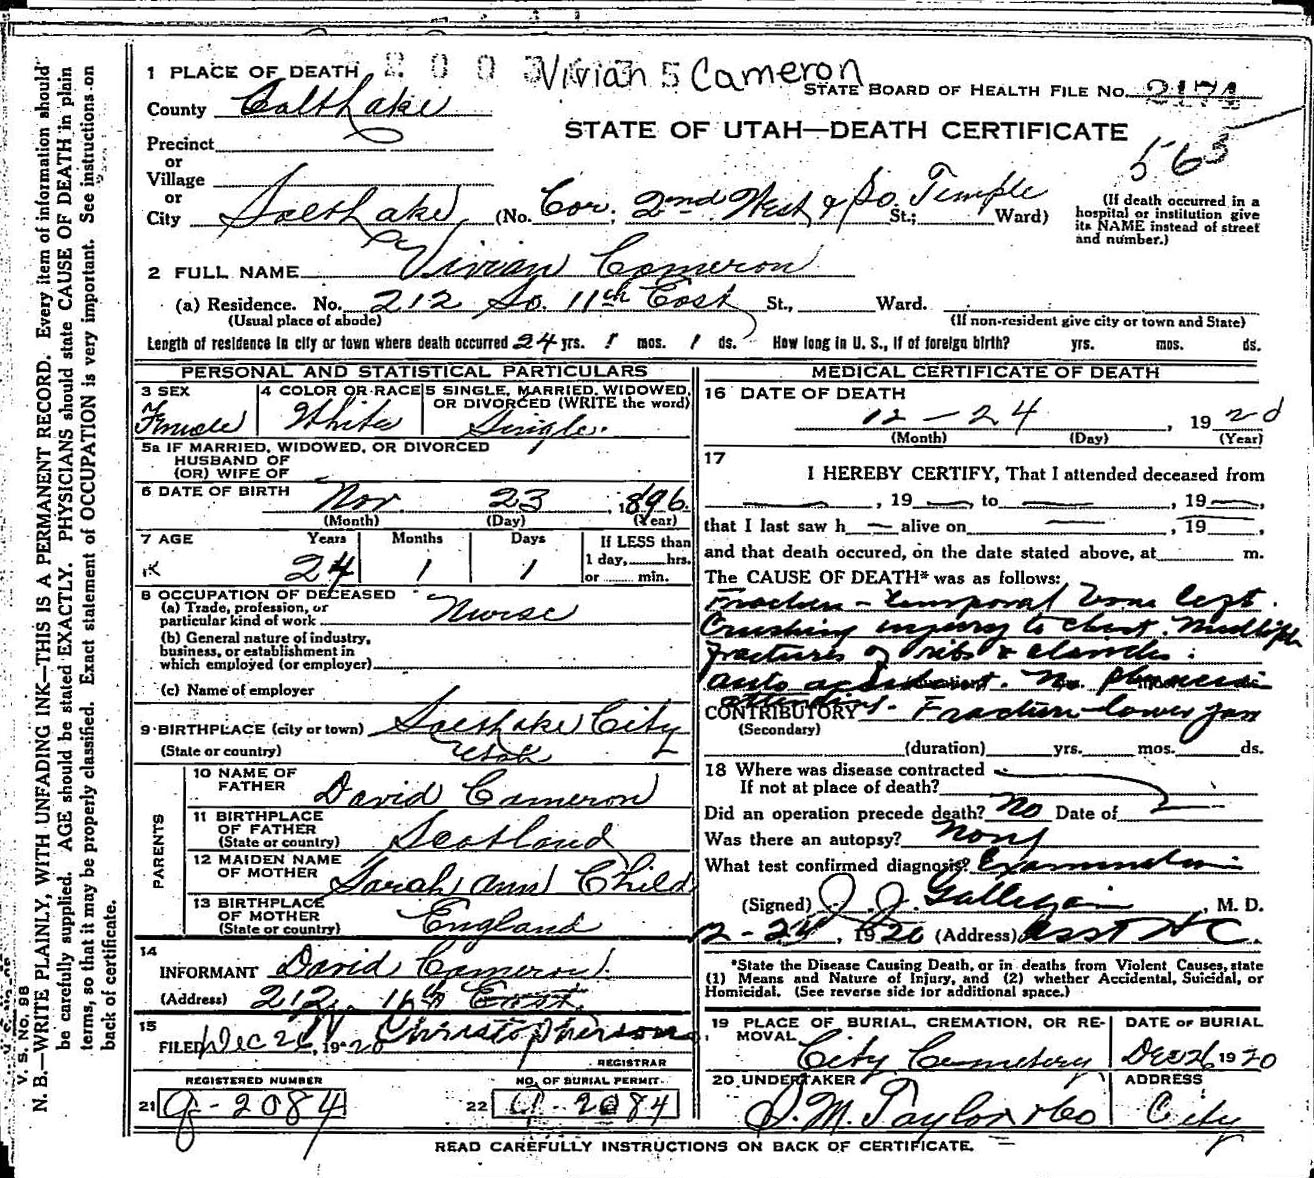 Vivian S Cameron
1 PLACE OF DEATH
STATE BOARD OF HEALTH FILE NO. 2174
County Salt Lake
STATE OF UTAH—DEATH CERTIFICATE
565
Precinct
or
Village
or
City Salt Lake (No. Cor. 2nd West & So. Temple St.; Ward)
(If death occurred in a hospital or institution give its NAME instead of street and number.)
2 FULL NAME Vivian Cameron
(a) Residence. No. 212 So. 11th East St., Ward.
(Usual place of abode) (If non-resident give city or town and State)
Length of residence in city or town where death occurred 24 yrs. 1 mos. 1 ds. How long in U. S., if of foreign birth? yrs. mos. ds.
PERSONAL AND STATISTICAL PARTICULARS
3 SEX Female
4 COLOR OR RACE White
5 SINGLE, MARRIED, WIDOWED, OR DIVORCED (WRITE the word) Single.
5a IF MARRIED, WIDOWED, OR DIVORCED
HUSBAND OF
(OR) WIFE OF
6 DATE OF BIRTH Nov. 23, 1896.
(Month) (Day) (Year)
7 AGE Years Months Days If LESS than
24 1 1 1 day, hrs.
or min.
8 OCCUPATION OF DECEASED
(a) Trade, profession, or
particular kind of work Nurse
(b) General nature of industry,
business, or establishment in
which employed (or employer)
(c) Name of employer
9 BIRTHPLACE (city or town) Salt Lake City
(State or country) Utah
PARENTS
10 NAME OF FATHER David Cameron
11 BIRTHPLACE OF FATHER (State or country) Scotland
12 MAIDEN NAME OF MOTHER Sarah Ann Child
13 BIRTHPLACE OF MOTHER (State or country) England
14
INFORMANT David Cameron.
(Address) 212 11th East.
15
FILED Dec 26, 1920 Christopherson
REGISTRAR
REGISTERED NUMBER
21 G-2084
NO. OF BURIAL PERMIT
22 G-2084
MEDICAL CERTIFICATE OF DEATH
16 DATE OF DEATH
12-24, 1920
(Month) (Day) (Year)
17
I HEREBY CERTIFY, That I attended deceased from
, 19 to , 19 ,
that I last saw h alive on , 19 ,
and that death occured, on the date stated above, at m.
The CAUSE OF DEATH* was as follows:
Fracture - temporal bone left.
Crushing injury to chest. Multiple
fractures of ribs & clavicle.
auto accident. No physician
attending.
CONTRIBUTORY Fracture lower jaw
(Secondary)
(duration) yrs. mos. ds.
18 Where was disease contracted
If not at place of death?
Did an operation precede death? No Date of
Was there an autopsy? None
What test confirmed diagnosis? Examination
(Signed) J. J. Galligan, M. D.
12-24, 1920 (Address) Asst H C.
*State the Disease Causing Death, or in deaths from Violent Causes, state
(1) Means and Nature of Injury, and (2) whether Accidental, Suicidal, or
Homicidal. (See reverse side for additional space.)
19 PLACE OF BURIAL, CREMATION, OR REMOVAL
City Cemetery
DATE OF BURIAL
Dec 26 1920
20 UNDERTAKER
S. M. Taylor & Co
ADDRESS
City
READ CAREFULLY INSTRUCTIONS ON BACK OF CERTIFICATE.
V. S. No. 98
N. B.—WRITE PLAINLY, WITH UNFADING INK—THIS IS A PERMANENT RECORD. Every item of information should
be carefully supplied. AGE should be stated EXACTLY. PHYSICIANS should state CAUSE OF DEATH in plain
terms, so that it may be properly classified. Exact statement of OCCUPATION is very important. See instructions on
back of certificate.